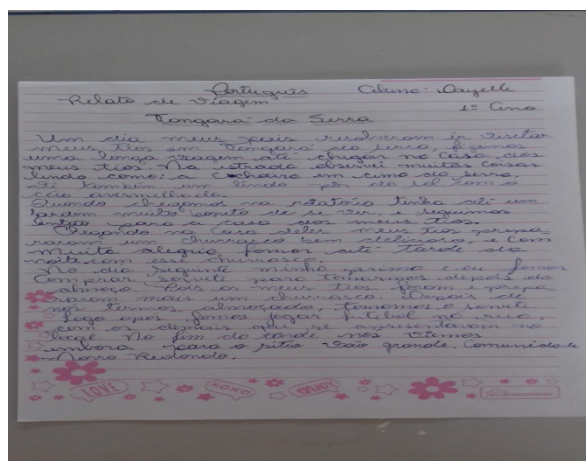 Português Aluna: Dayelle
Relato de viagem 1º Ano
Tangará da Serra
Um dia meus pais resolveram ir visitar
meus tios em Tangará da serra, fizemos
uma longa viagem até chegar na casa dos
meus tios. Na estrada observei muitas coisas
lindas como: a Cachoeira em cima da serra,
vi também um lindo pôr do sol com o
céu avermelhado.
Quando chegamos na rotatória tinha até um
jardim muito bonito de se ver, e seguimos
então para a casa dos meus tios.
Chegando na casa deles meus tios prepa
raram um churrasco bem delicioso, e com
muita alegria fomos até tarde da
noite com esse churrasco.
No dia seguinte minha prima e eu fomos
comprar sorvete para tomarmos depois do
almoço. Pois os meus tios foram e prepa
raram mais um churrasco. Depois de
nós termos almoçado, tomamos o sorvete
logo após fomos jogar futebol na rua,
com os demais que se apresentaram no
local. No fim da tarde nós viemos
embora para o sítio Vão grande. Comunidade
Morro Redondo.
LOVE XOXO